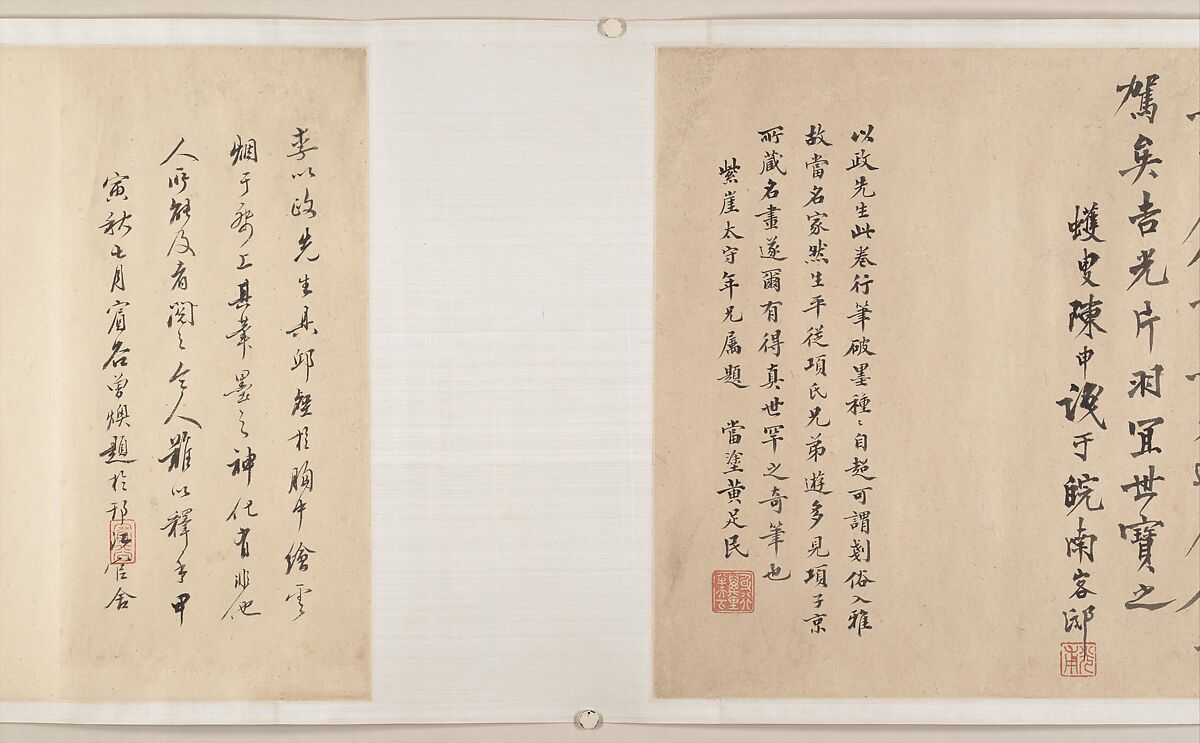 駕矣吉光片羽宜世寶之
蠖叟陳申識于皖南客邸
以政先生此卷行筆破墨種〻自超可謂剗俗入雅
故當名家然生平從項氏兄弟遊多見項子京
所藏名畫遂爾有得真世罕之奇筆也
紫崖太守年兄属題 當塗黄足民
李以政先生具邱壑於胸中繪雲
烟于紙上其筆墨之神化有非他
人所能及者閱之令人難以釋手甲
寅秋七月賓谷曾燠題於邗江官舍